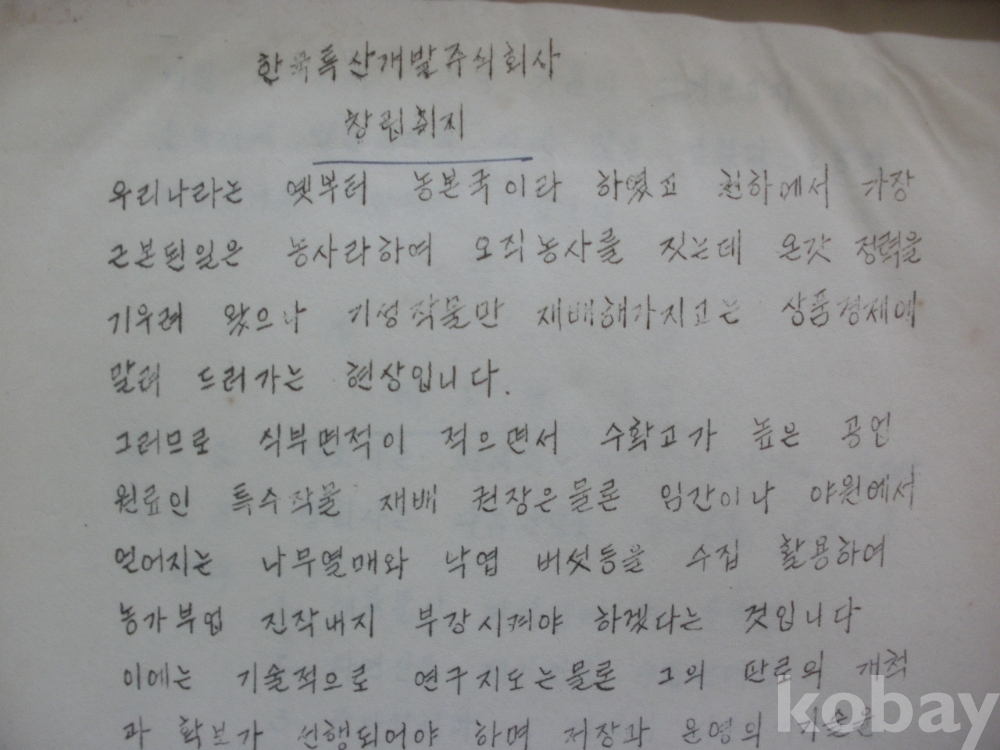 한국특산개발주식회사
창립취지
우리나라는 옛부터 농본국이라 하였고 천하에서 가장
근본된일은 농사라하여 오직농사를 짓는데 온갖 정력을
기우려 왔으나 기성작물만 재배해가지고는 상품경제에
말려 드러가는 현상입니다.
그러므로 식부면적이 적으면서 수확고가 높은 공업
원료인 특수작물 재배 권장은물론 임간이나 야원에서
얻어지는 나무열매와 낙엽 버섯등을 수집 활용하여
농가부업 진작내지 부강시켜야 하겠다는 것입니다
이에는 기술적으로 연구지도는물론 그의 판로의 개척
과 확보가 선행되어야 하며 저장과 운영의 기술을
kobay